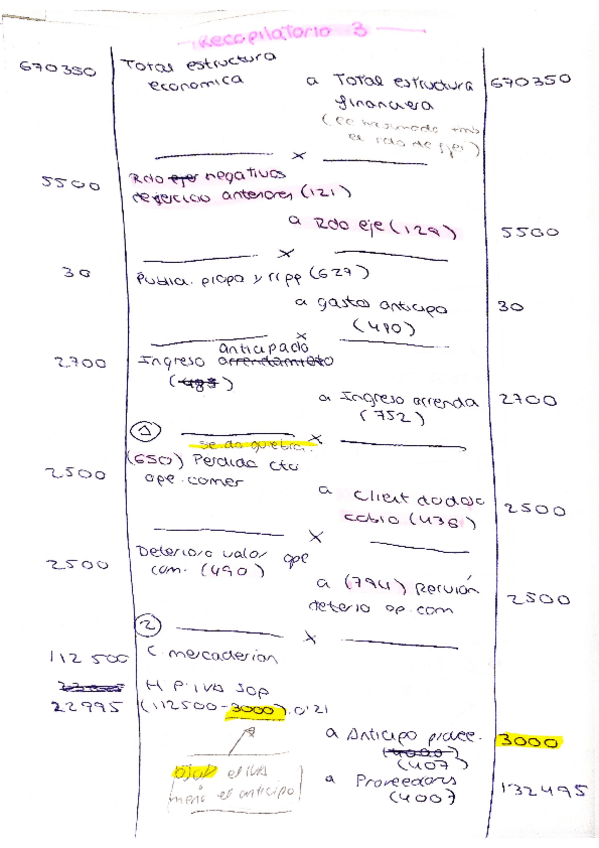 Recopilatorio 3
670350 Total estructura
economica
a Total estructura 670350
financiera
el rdo de eje)
x
5500 Rdo eje negativos
de ejercicio anteriores (121)
a Rdo eje (129) 5500
x
30 Publia. propa y rrpp (627)
a gasto anticipo 30
(480)
x
anticipado
2700 Ingreso arrendamiento
(485)
a Ingreso arrenda 2700
(752)
1 x
se da quiebra.
(650) Perdida cto
2500 ope. comer
a Client dudoso 2500
cobro (436)
x
2500 Deterioro valor ope
com. (490)
a (794) Reversión
deterio op. com 2500
2 x
112500 C. mercaderian
H P. IVA SOP
22995 (112500-3000).0'21
a Anticipo provee. 3000
(4000)
(407)
a Proveedors 132495
(400)
Ojo!! el IVA
meno el anticipo